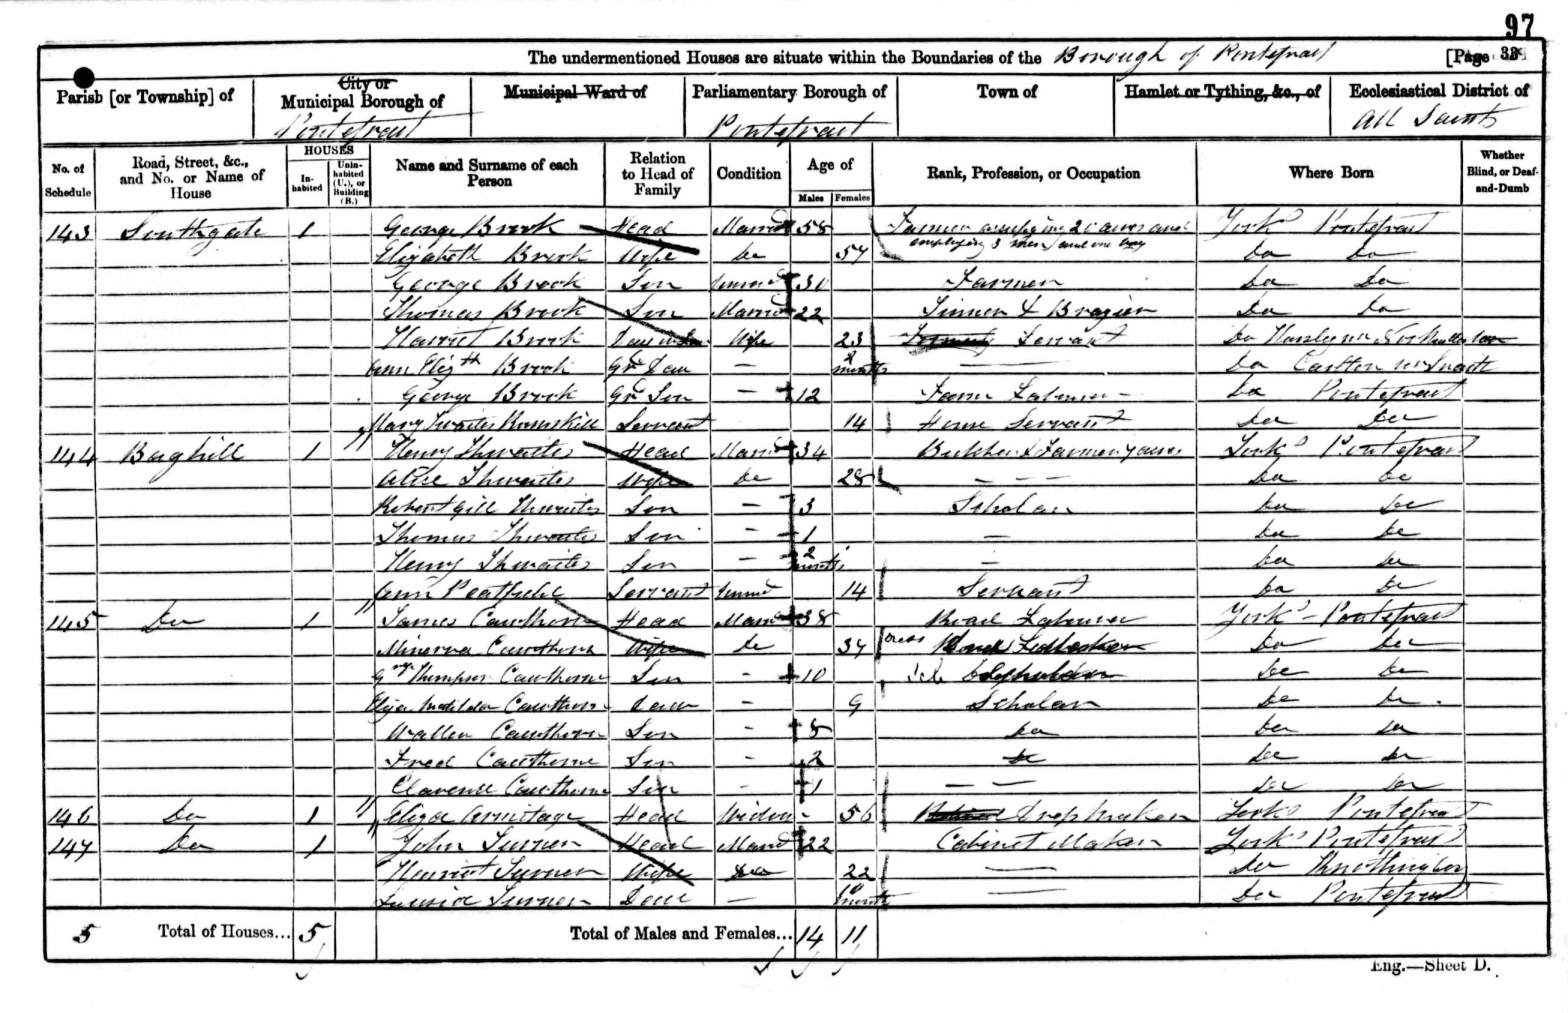 97
The undermentioned Houses are situate within the Boundaries of the Borough of Pontefract [Page 33]
Parish [or Township] of
City or Municipal Borough of
Pontefract
Municipal Ward of
Parliamentary Borough of
Pontefract
Town of
Hamlet or Tything, &c., of
Ecclesiastical District of
All Saints
No. of Schedule
Road, Street, &c., and No. or Name of House
HOUSES
In-habited
Unin-habited (U.), or Building (B.)
Name and Surname of each Person
Relation to Head of Family
Condition
Age of
Males
Females
Rank, Profession, or Occupation
Where Born
Whether Blind, or Deaf-and-Dumb
143 Southgate 1 George Brook Head Married 58 Farmer occupying 20 acres and employing 3 men and one boy York Pontefract
Elizabeth Brook Wife do 57 do do
George Brook Son Unmd 31 Farmer do do
Thomas Brook Son Married 22 Tinner & Brazier do do
Harriet Brook Wife 23 Servant Do
Ann Elizth Brook Gr Dau — months — do Carlton nr Snaith
George Brook Gr Son — 12 Farm Labourer do Pontefract
Mary Thwaites Servant 14 House Servant do do
144 Baghill 1 Henry Thwaites Head Married 34 Butcher & Farmer 7 acres York Pontefract
Alice Thwaites Wife do 28 — — — do do
Robert Gill Thwaites Son — 3 Scholar do do
Thomas Thwaites Son — 1 — do do
Henry Thwaites Son — 2 months — do do
Ann Peatfield Servant Unmd 14 Servant do do
145 Do 1 James Cawthorne Head Married 38 Road Labourer York Pontefract
Minerva Cawthorne Wife do 37 do do
Thompson Cawthorne Son — 10 do do
Eliza Matilda Cawthorne Daur — 9 Scholar do do
Walter Cawthorne Son — 8 do do do
Fred Cawthorne Son — 2 do do do
Clarence Cawthorne Son — 1 — — do do
146 Do 1 Eliza Armitage Head Widow 56 Dress Maker York Pontefract
147 Do 1 John Turner Head Mard 22 Cabinet Maker York Pontefract
Harriet Turner Wife Do 22 — do Knottingley
Louisa Turner Daur — 10 months — Do Pontefract
5 Total of Houses... 5 Total of Males and Females... 14 11
Eng.—Sheet D.